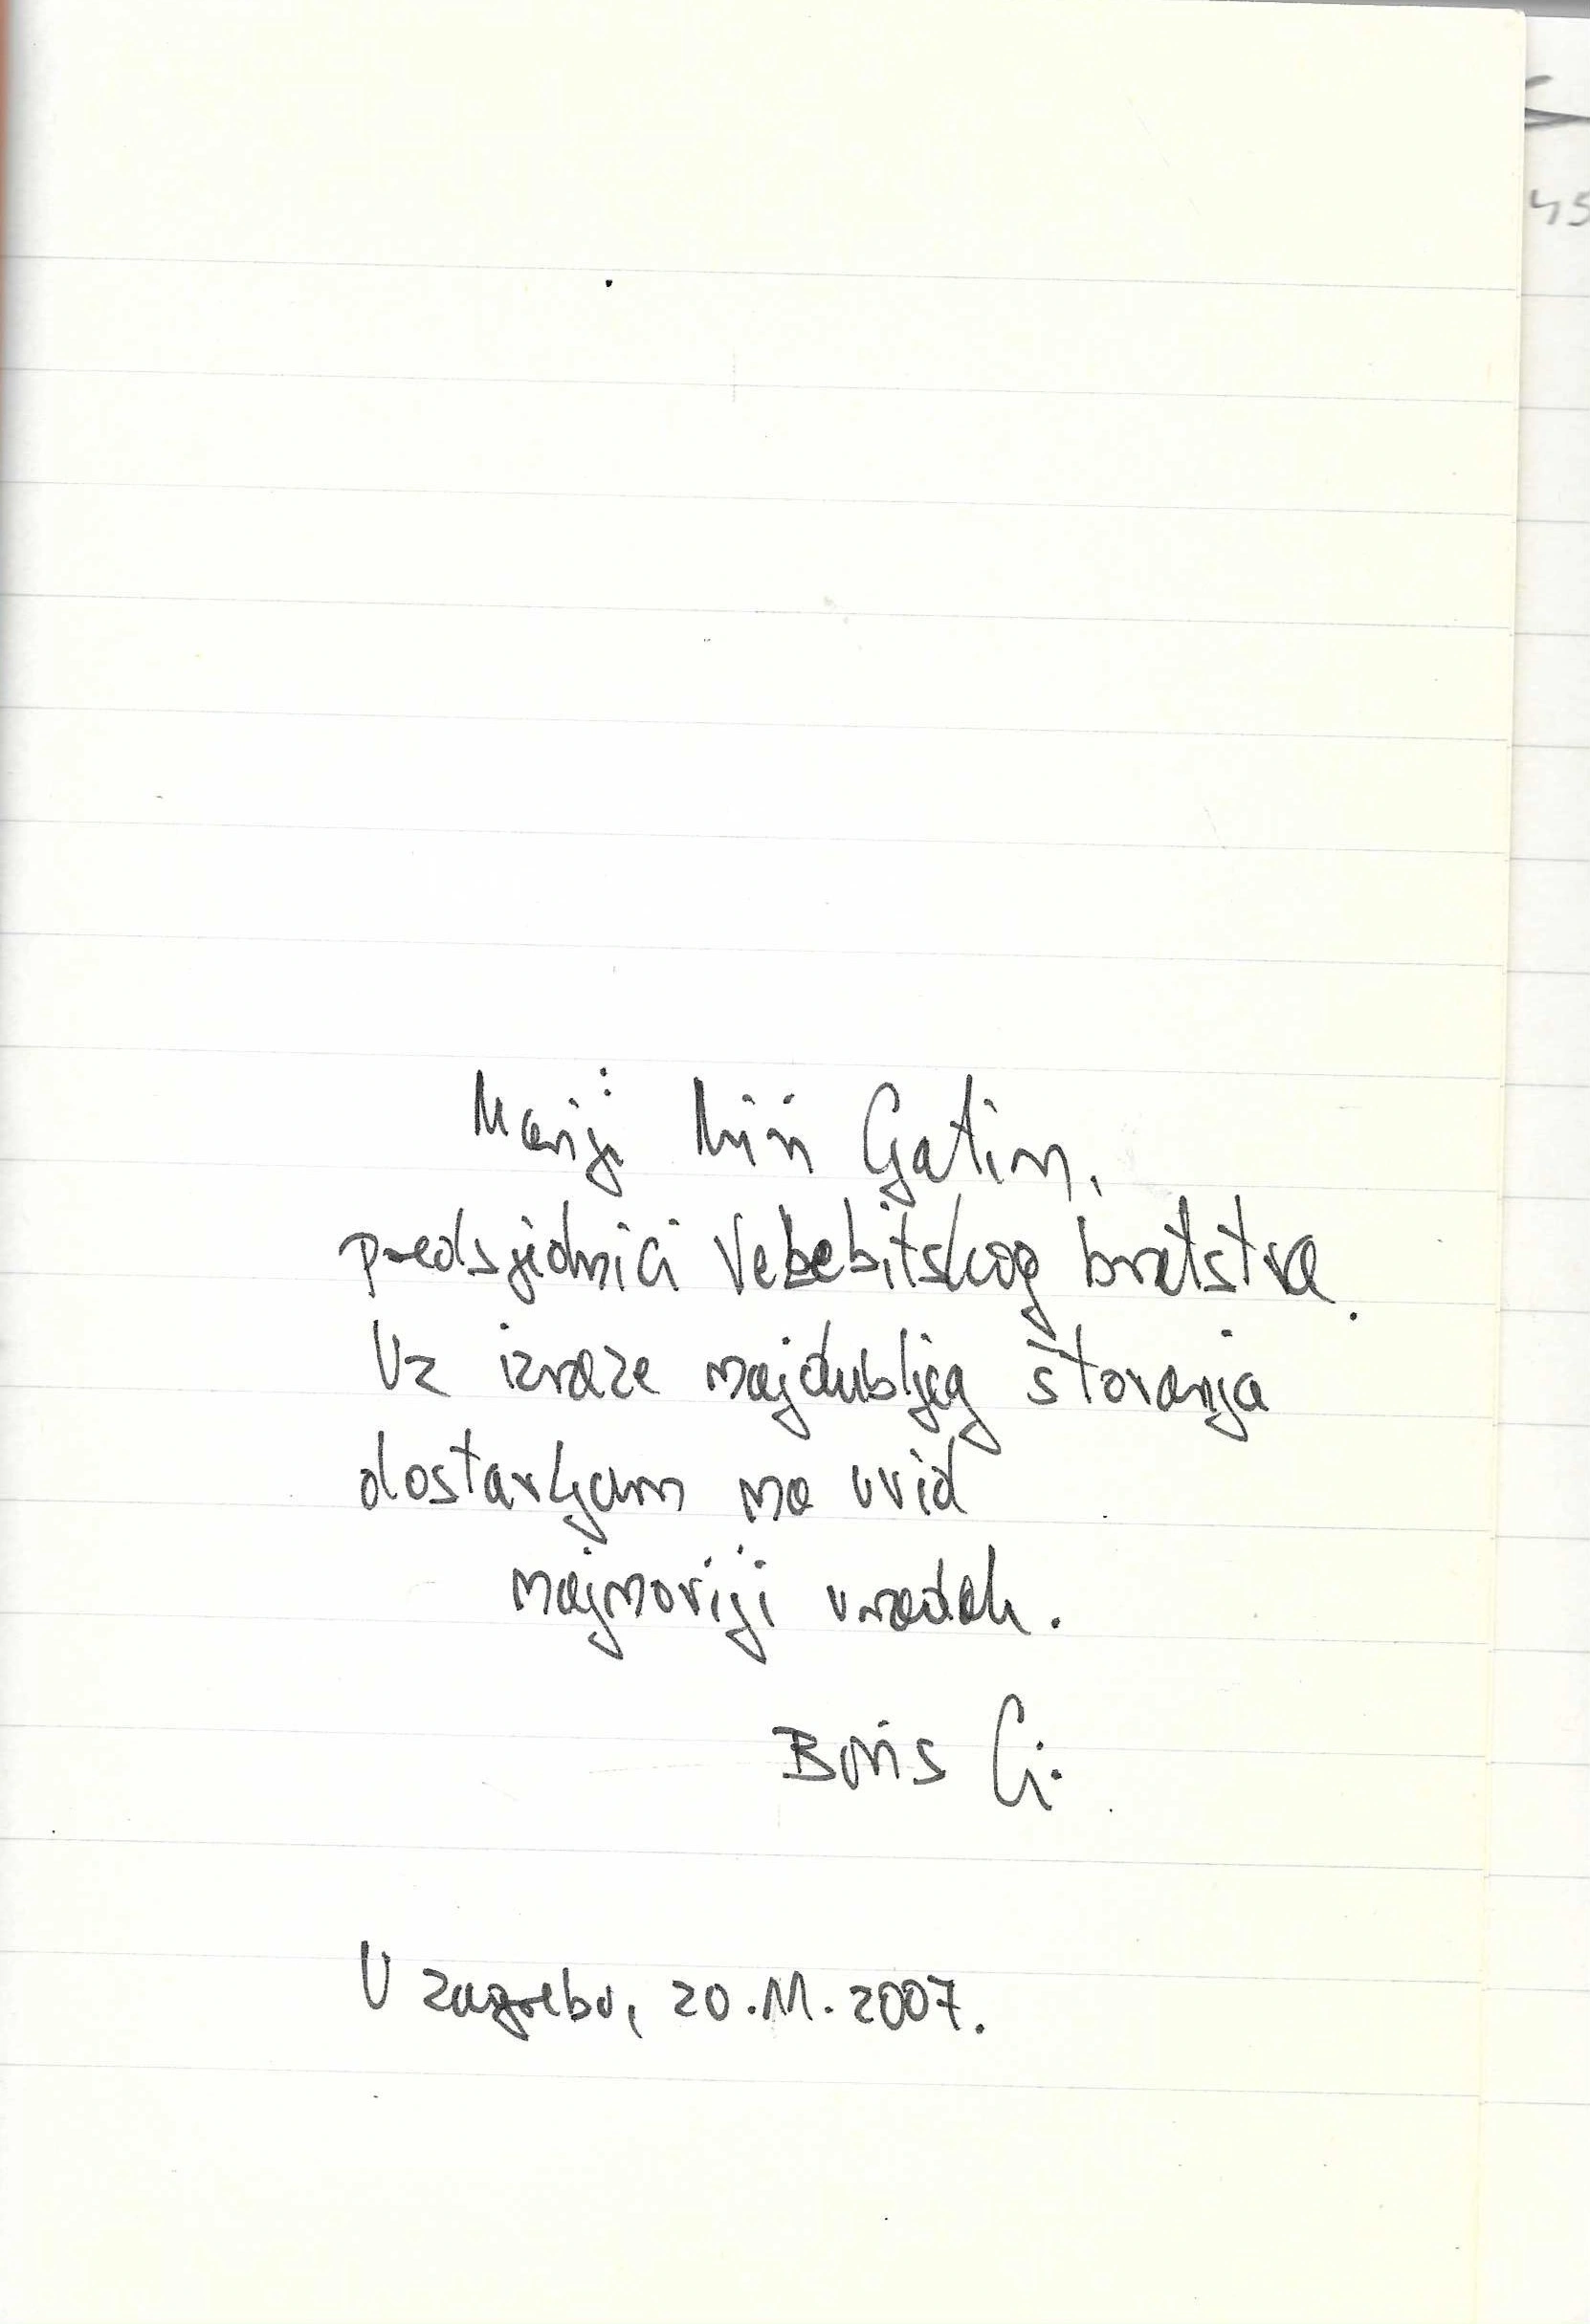 Mariji Gatin,
predsjednici Velebitskog bratstva.
Uz izraze najdubljeg štovanja
dostavljam na uvid
najnoviji uradak.
Boris
U Zagrebu, 20.11.2007.